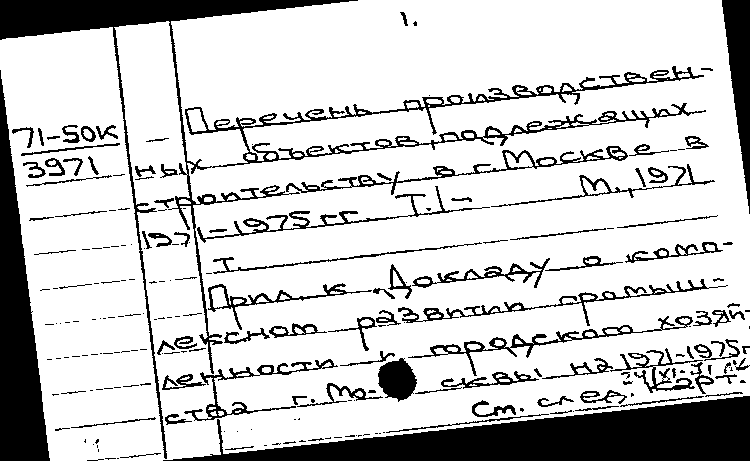 1.
Перечень производствен-
71-50К
3971
ных объектов, подлежащих
строительству в г. Москве в
1971-1975 гг. Т.1- М., 1971
т.
Прил. к "Докладу о комп-
лексном развитии промыш-
ленности и городского хозяй-
ства г. Мо- сквы на 1971-1975г
См. след. карт.